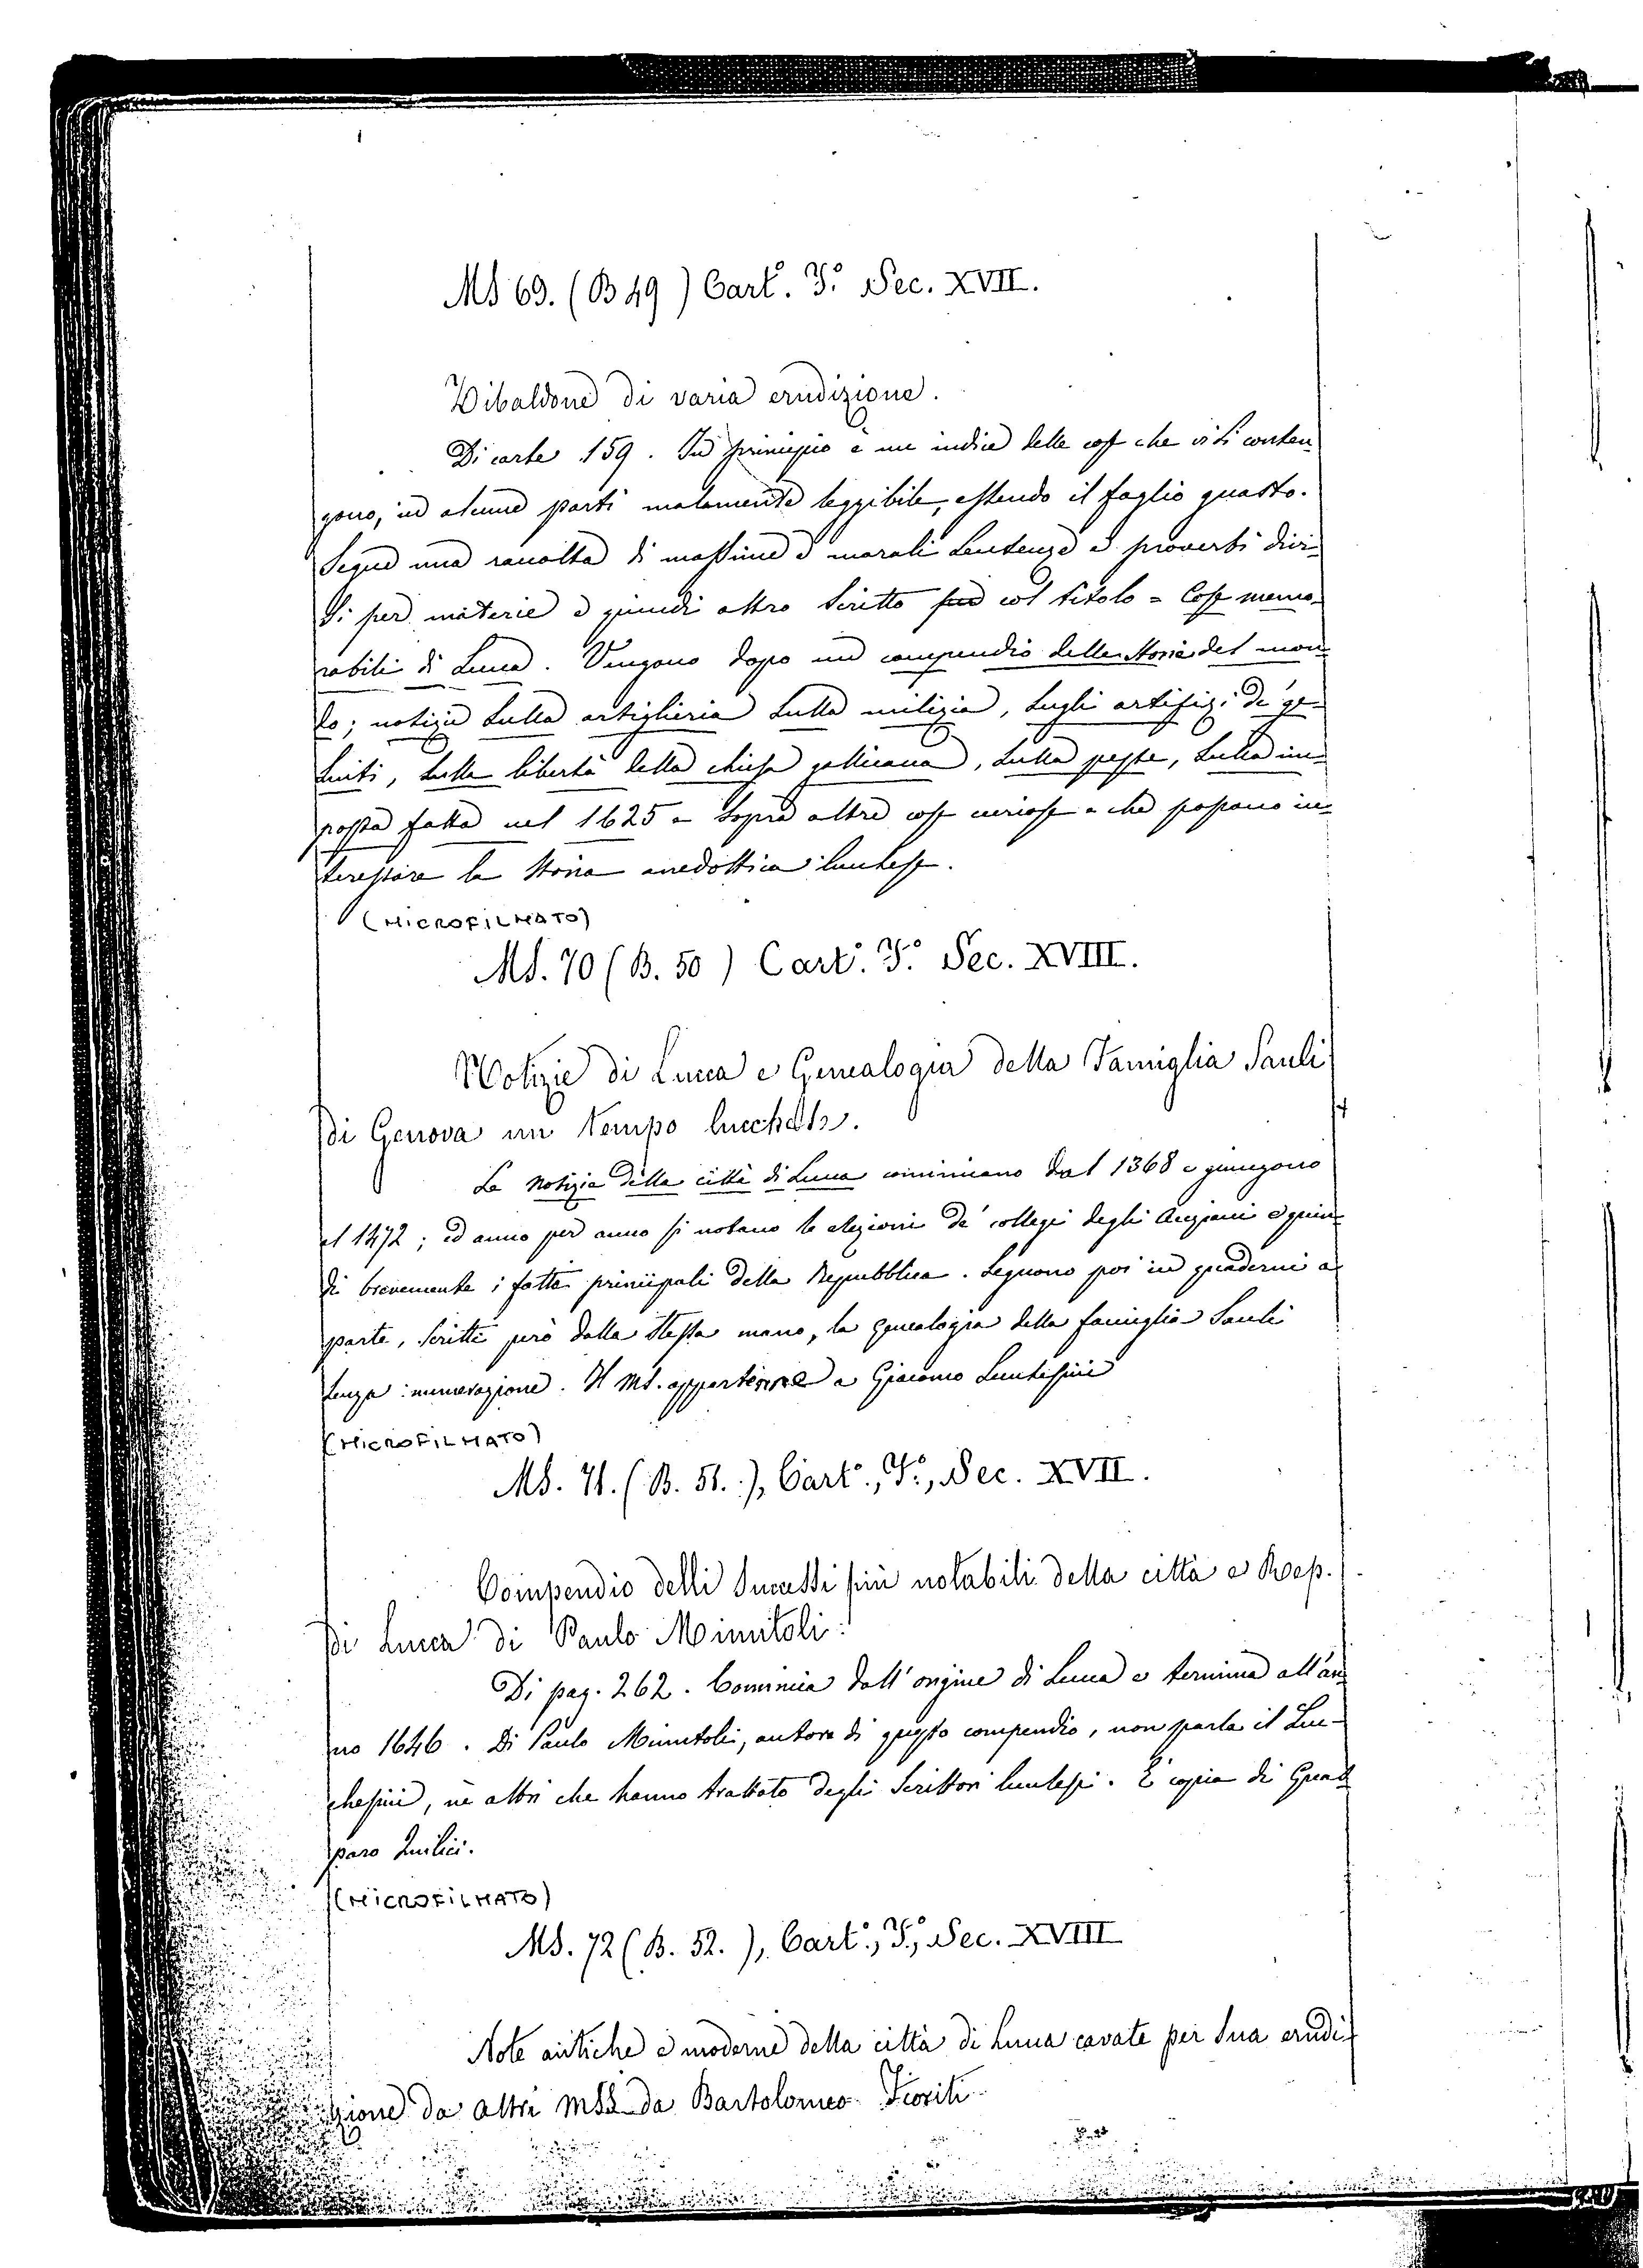 Ms 69. (B 49) Cart.° F.° Sec. XVII.
Zibaldone di varia erudizione.
Di carte 159. In principio è un indice delle cose che vi si conten-
gono, in alcune parti malamente leggibile, essendo il foglio guasto.
Segue una raccolta di massime e morali sentenze e proverbi divi-
si per materie e quindi altro scritto col titolo = Cose memo-
rabili di Lucca. Vengono dopo un compendio della storia del mon-
do; notizie sulla artiglieria sulla milizia, sugli artifizi de' ge-
suiti, sulla libertà della chiesa gallicana, sulla peste, sulla im-
posta fatta nel 1625 e sopra altre cose curiose e che possono in-
teressare la storia anedottica lucchese.
(MICROFILMATO)
Ms. 70 (B. 50) Cart.° F.° Sec. XVIII.
Notizie di Lucca e Genealogia della Famiglia Sauli
di Genova un tempo lucchese.
Le notizie della città di Lucca cominciano dal 1368 e giungono
al 1472; ed anno per anno si notano le elezioni de' collegi degli Anziani e quin-
di brevemente i fatti principali della Repubblica. Seguono poi in quaderni a
parte, scritti però dalla stessa mano, la genealogia della famiglia Sauli
senza numerazione. Il Ms. appartenne a Giacomo Lucchesini
(MICROFILMATO)
Ms. 71. (B. 51.), Cart.°, F.°, Sec. XVII.
Compendio delli Successi più notabili della città e Rep.
di Lucca di Paulo Minutoli.
Di pag. 262. Comincia dall'origine di Lucca e termina all'an-
no 1646. Di Paulo Minutoli, autore di questo compendio, non parla il Luc-
chesini, nè altri che hanno trattato degli Scrittori lucchesi. È copia di
paro Quilici.
(MICROFILMATO)
Ms. 72 (B. 52.), Cart.°, F.°, Sec. XVIII
Note antiche e moderne della città di Lucca cavate per sua erudi-
zione da altri mss da Bartolomeo Fioriti